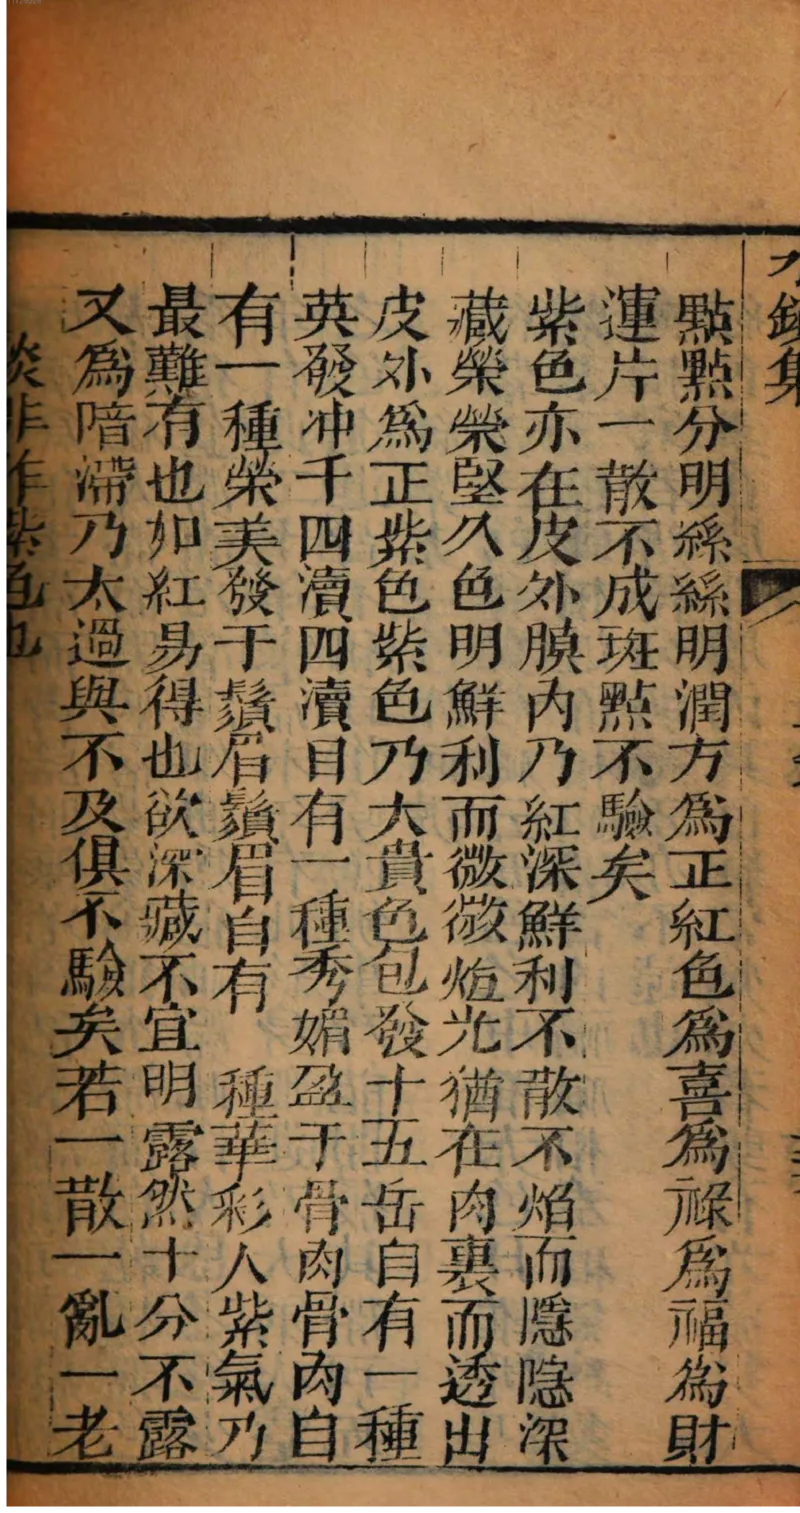 水鏡集
點點分明絲絲明潤方為正紅色為喜為祿為福為財
運片一散不成斑點不驗矣
紫色亦在皮外膜內乃紅深鮮利不散不焰而隱隱深
藏榮榮堅久色明鮮利而微微焰光猶在肉裏而透出
皮外為正紫色紫色乃大貴色包發十五岳自有一種
英發冲千四瀆四瀆目有一種秀媚盈于骨肉骨肉自
有一種榮美發于鬚眉鬚眉自有 種華彩人紫氣乃
最難有也如紅易得也欲深藏不宜明露然十分不露
又為暗滯乃太過與不及俱不驗矣若一散一亂一老